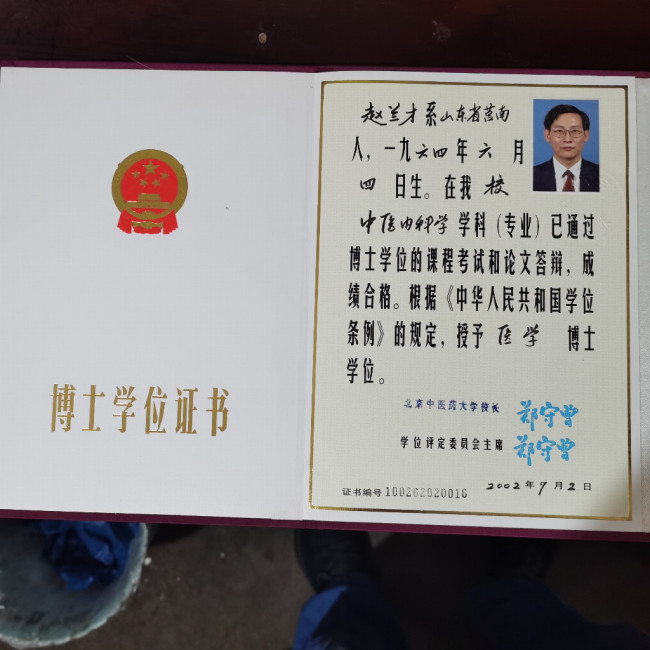 博士学位证书
赵兰才系山东省莒南
人，一九六四年六月
四日生。在我校
中医内科学学科（专业）已通过
博士学位的课程考试和论文答辩，成
绩合格。根据《中华人民共和国学位
条例》的规定，授予医学博士
学位。
北京中医药大学校长 郑守曾
学位评定委员会主席 郑守曾
证书编号 100262020016 2002年9月2日